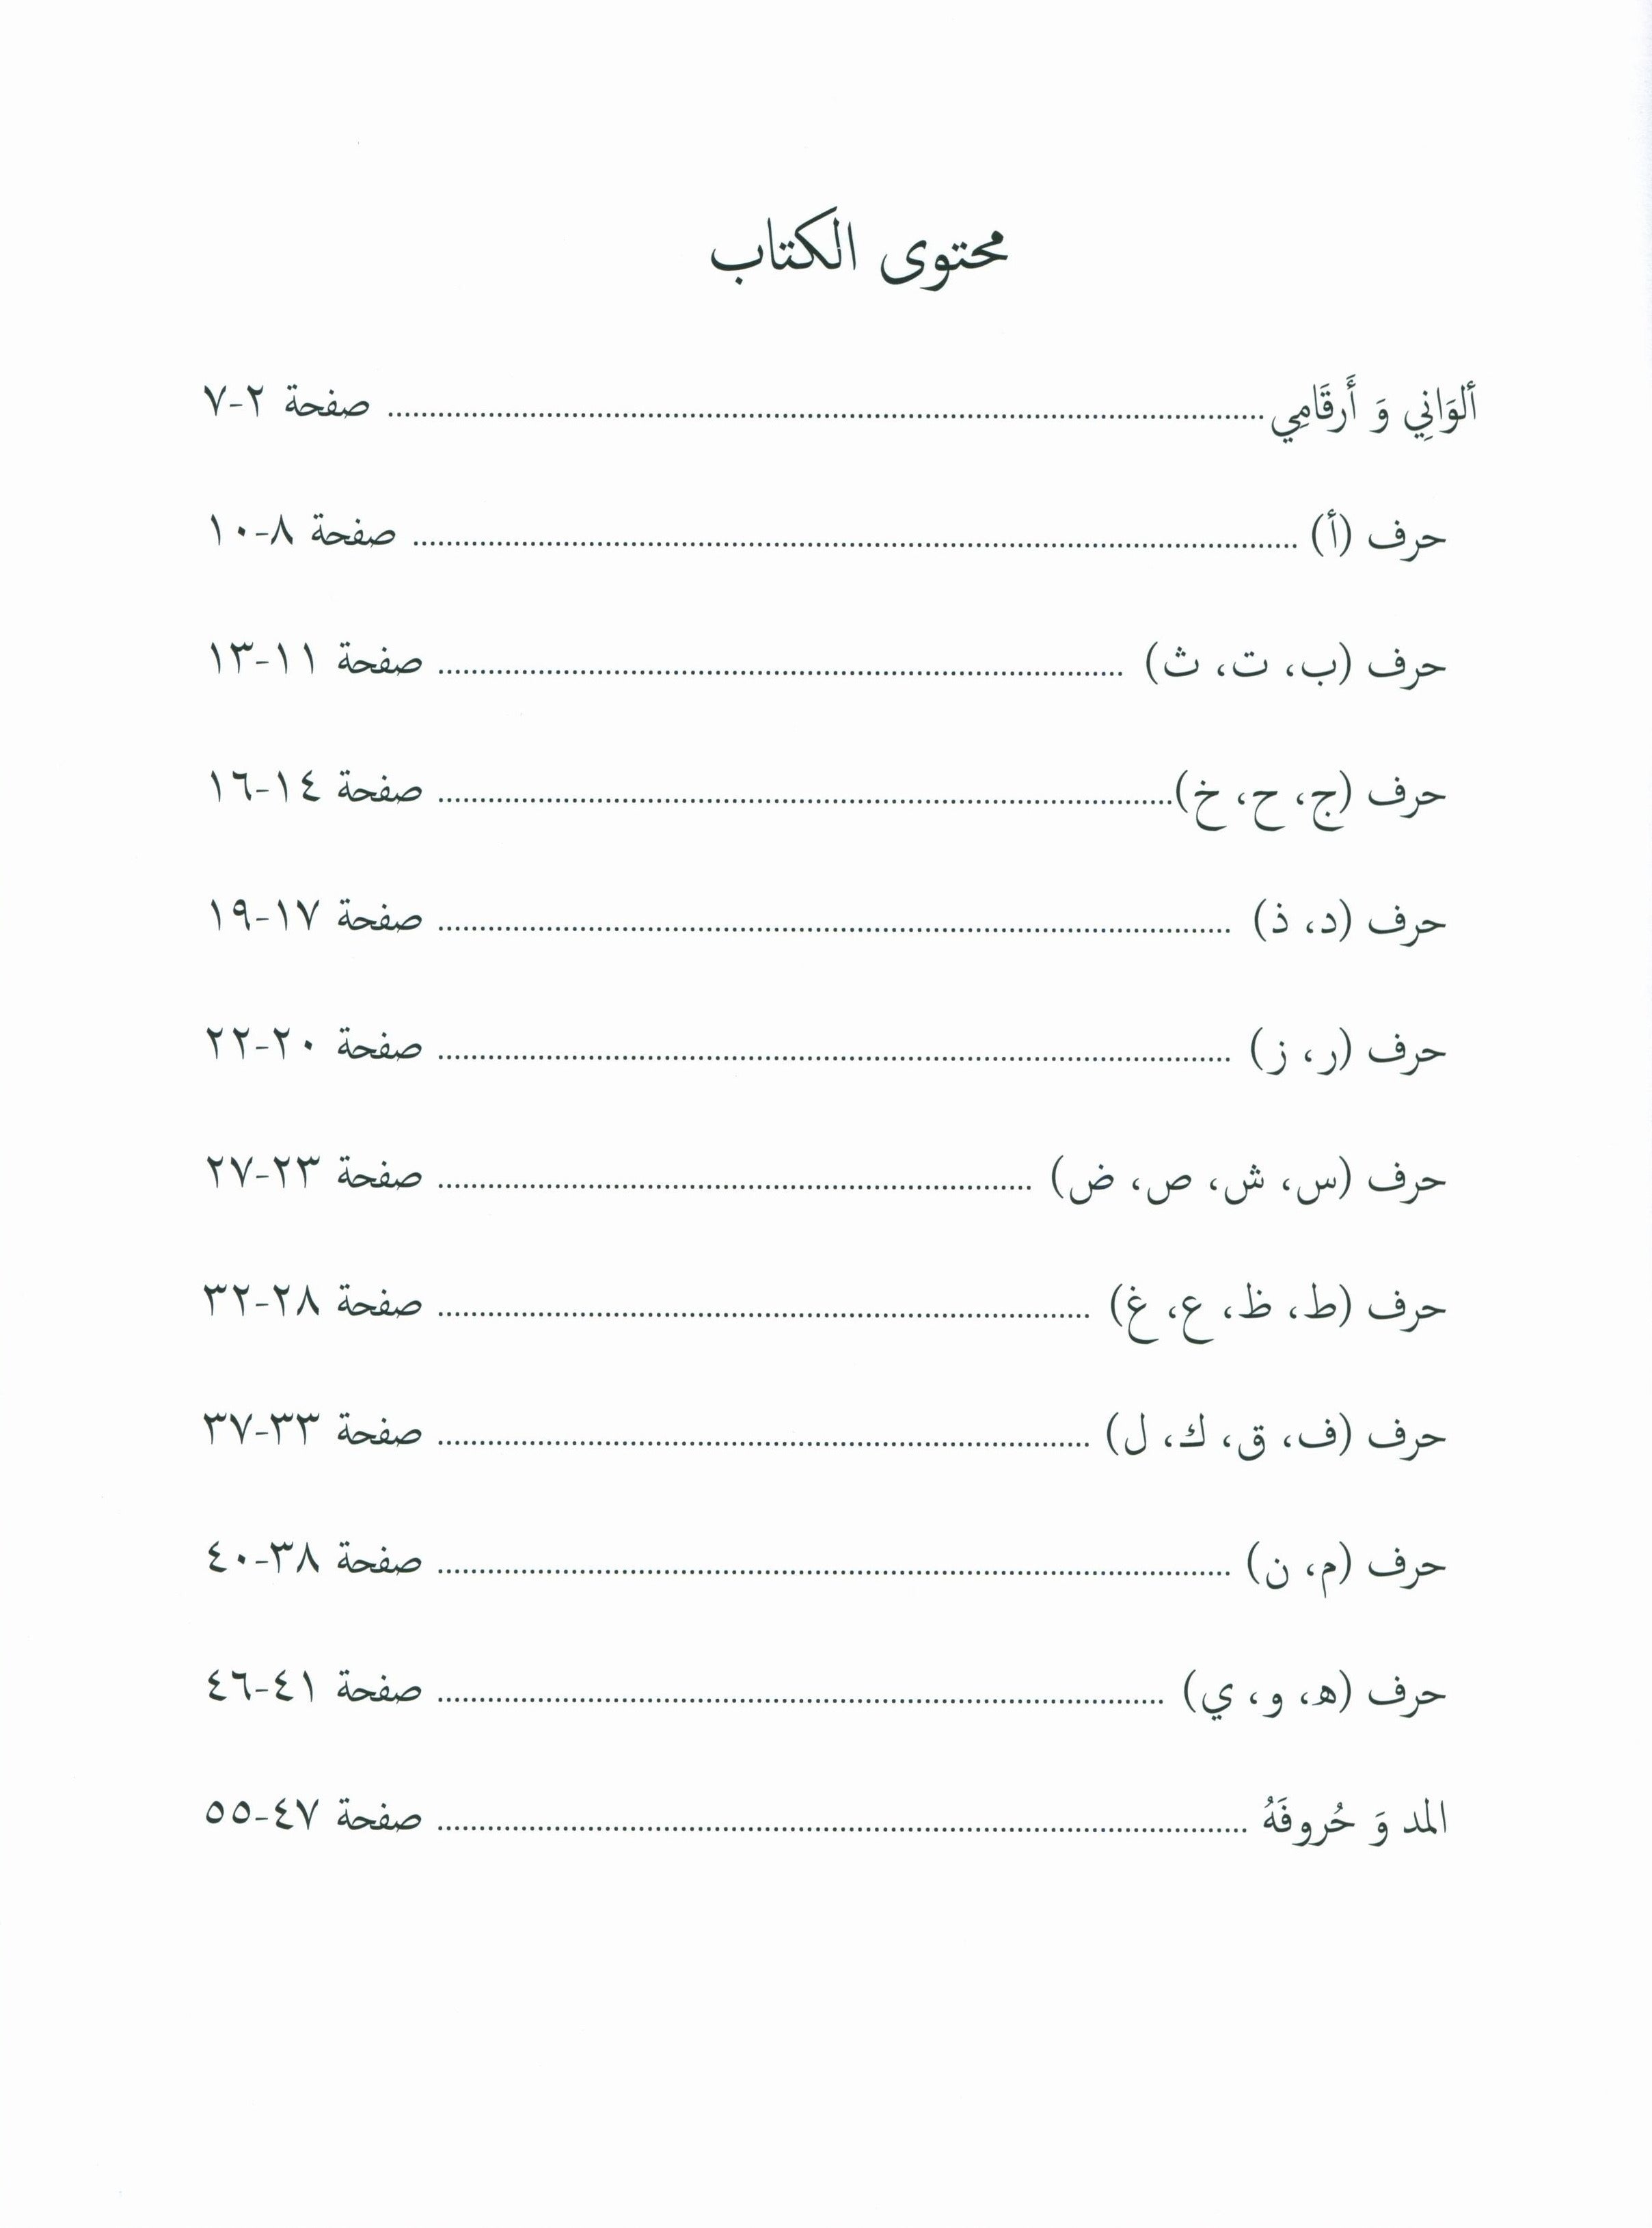 محتوى الكتاب
ألوَانِي وَ أَرقَامِي........................................ صفحة ٢-٧
حرف (أ) ........................................ صفحة ٨-١٠
حرف (ب، ت، ث) ........................................ صفحة ١١-١٣
حرف (ج، ح، خ)........................................ صفحة ١٤-١٦
حرف (د، ذ) ........................................ صفحة ١٧-١٩
حرف (ر، ز) ........................................ صفحة ٢٠-٢٢
حرف (س، ش، ص، ض) ........................................ صفحة ٢٣-٢٧
حرف (ط، ظ، ع، غ) ........................................ صفحة ٢٨-٣٢
حرف (ف، ق، ك، ل) ........................................ صفحة ٣٣-٣٧
حرف (م، ن) ........................................ صفحة ٣٨-٤٠
حرف (هـ، و، ي) ........................................ صفحة ٤١-٤٦
المد وَ حُروفَهُ ........................................ صفحة ٤٧-٥٥